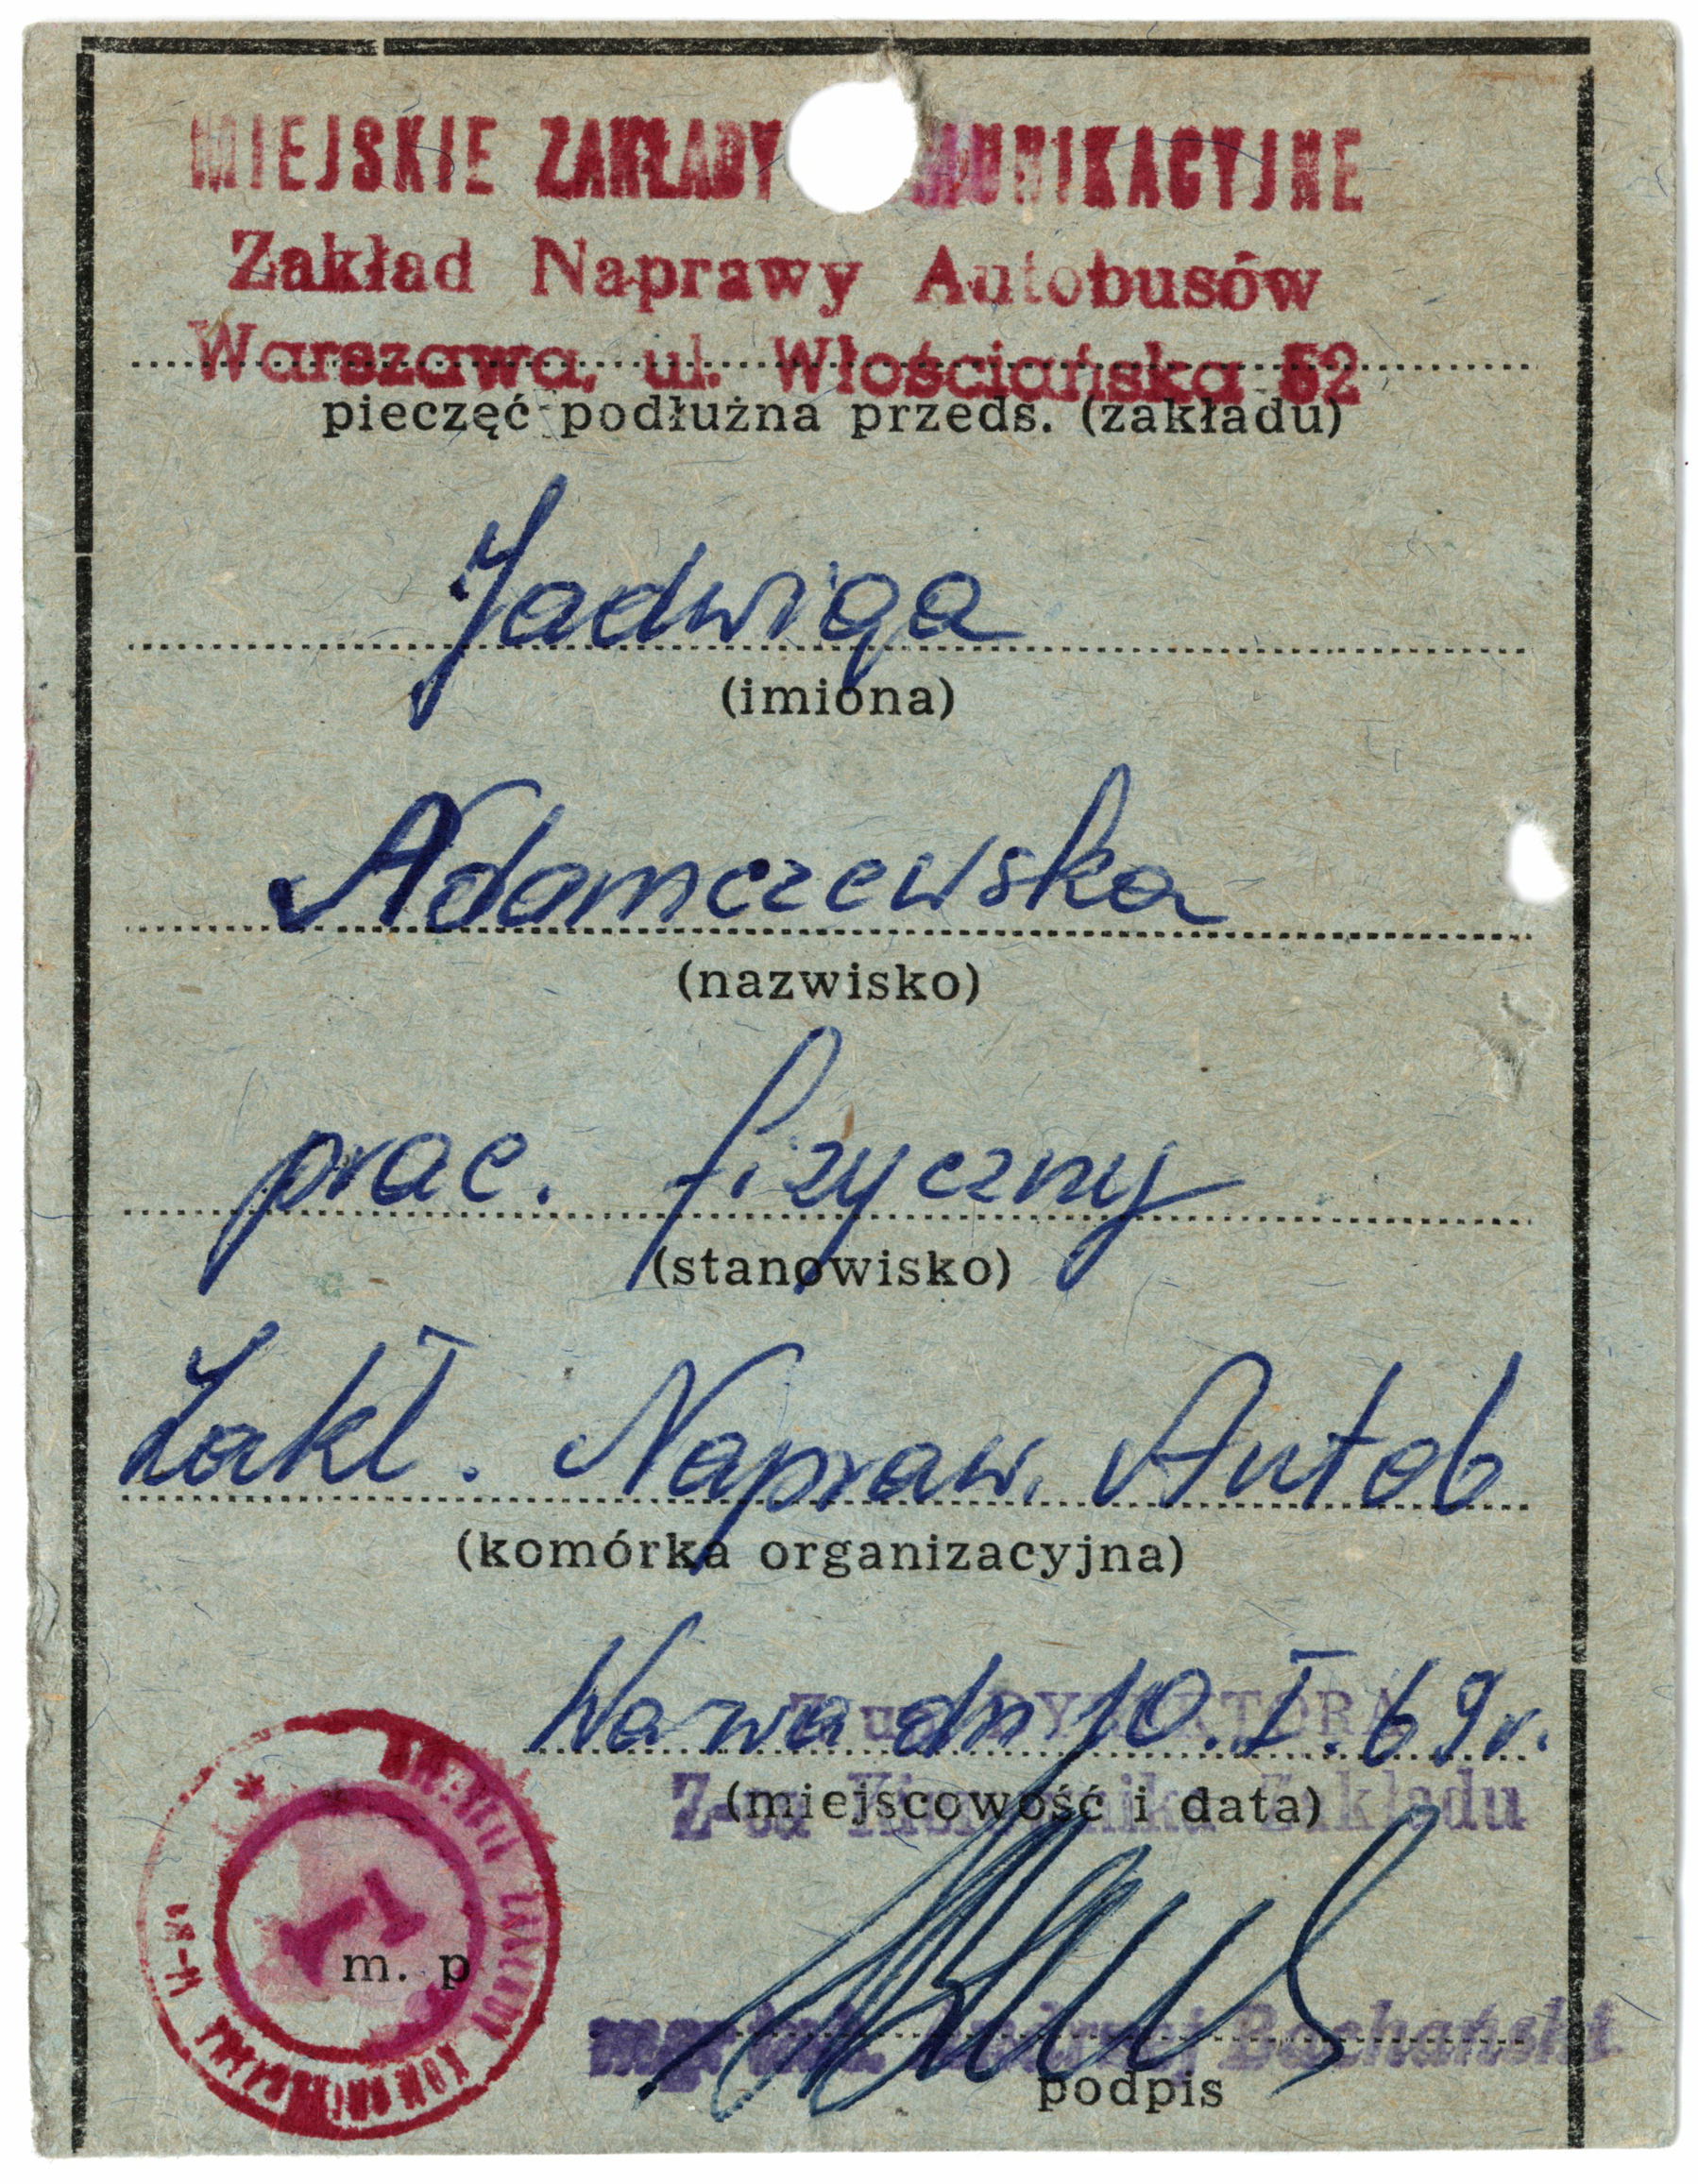 MIEJSKIE ZAKŁADY MUNIKACYJNE
Zakład Naprawy Autobusów
Warszawa, ul. Włościańska 52
pieczęć podłużna przeds. (zakładu)
Jadwiga
(imiona)
Adamczewska
(nazwisko)
prac. fizyczny
(stanowisko)
Zakł. Napraw. Autob
(komórka organizacyjna)
Wa-wa dn 10.I.69r.
Z up. DYREKTORA
(miejscowość i data)
Z-ca Kierownika Zakładu
MIEJSKIE ZAKŁADY KOMUNIKACYJNE
m. p
mgr inż. Andrzej Bochański
podpis